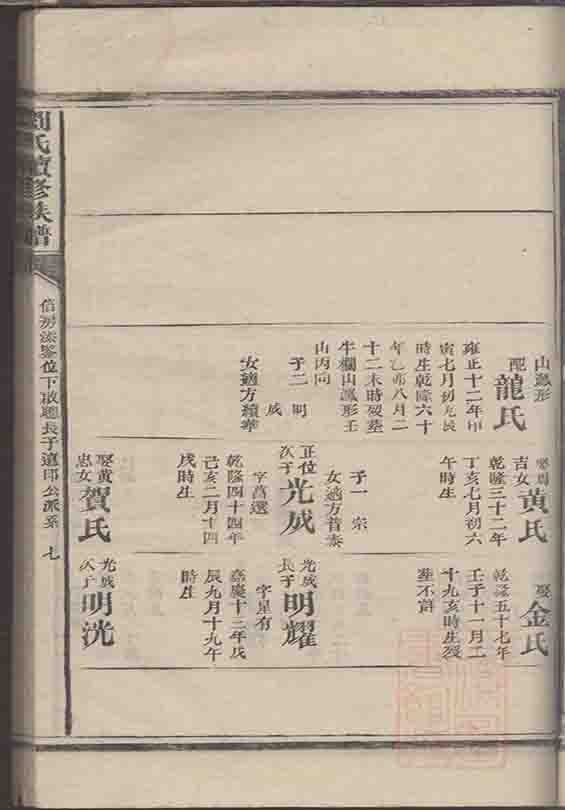 山鳳形
配龍氏
雍正十二年甲
寅七月初九辰
時生乾隆六十
年乙卯八月二
十二未時歿葬
牛欄山鳳形壬
山丙向
子二 明
成
女適方續華
吉女黃氏
乾隆三十二年
丁亥七月初六
午時生
子一 宗
女適方普泰
正位次子光成
字萬選
乾隆四十四年
己亥二月十四
戌時生
娶黃忠女賀氏
娶金氏
乾隆五十七年
壬子十一月二
十九亥時生歿
葬不詳
光成長子明耀
字星有
嘉慶十三年戊
辰九月十九午
時生
光成次子明洸
氏續修族譜
位下啟聰長子遠邦公派系 七